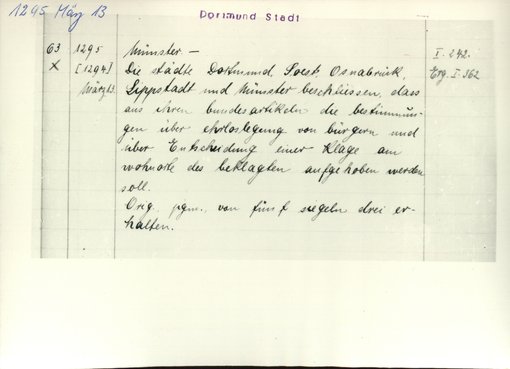 1295 März 13
Dortmund Stadt
63 1295 Münster — I. 242.
X [1294] Die städte Dortmund, Soest, Osnabrück, Erg. I. 362
März 13. Lippstadt und Münster beschliessen, dass
aus ihren bundesartikeln die bestimmun-
gen über ehrloslegung von bürgern und
über Entscheidung einer Klage am
wohnorte des beklagten aufgehoben werden
soll.
Orig. pgm. von fünf siegeln drei er-
halten.